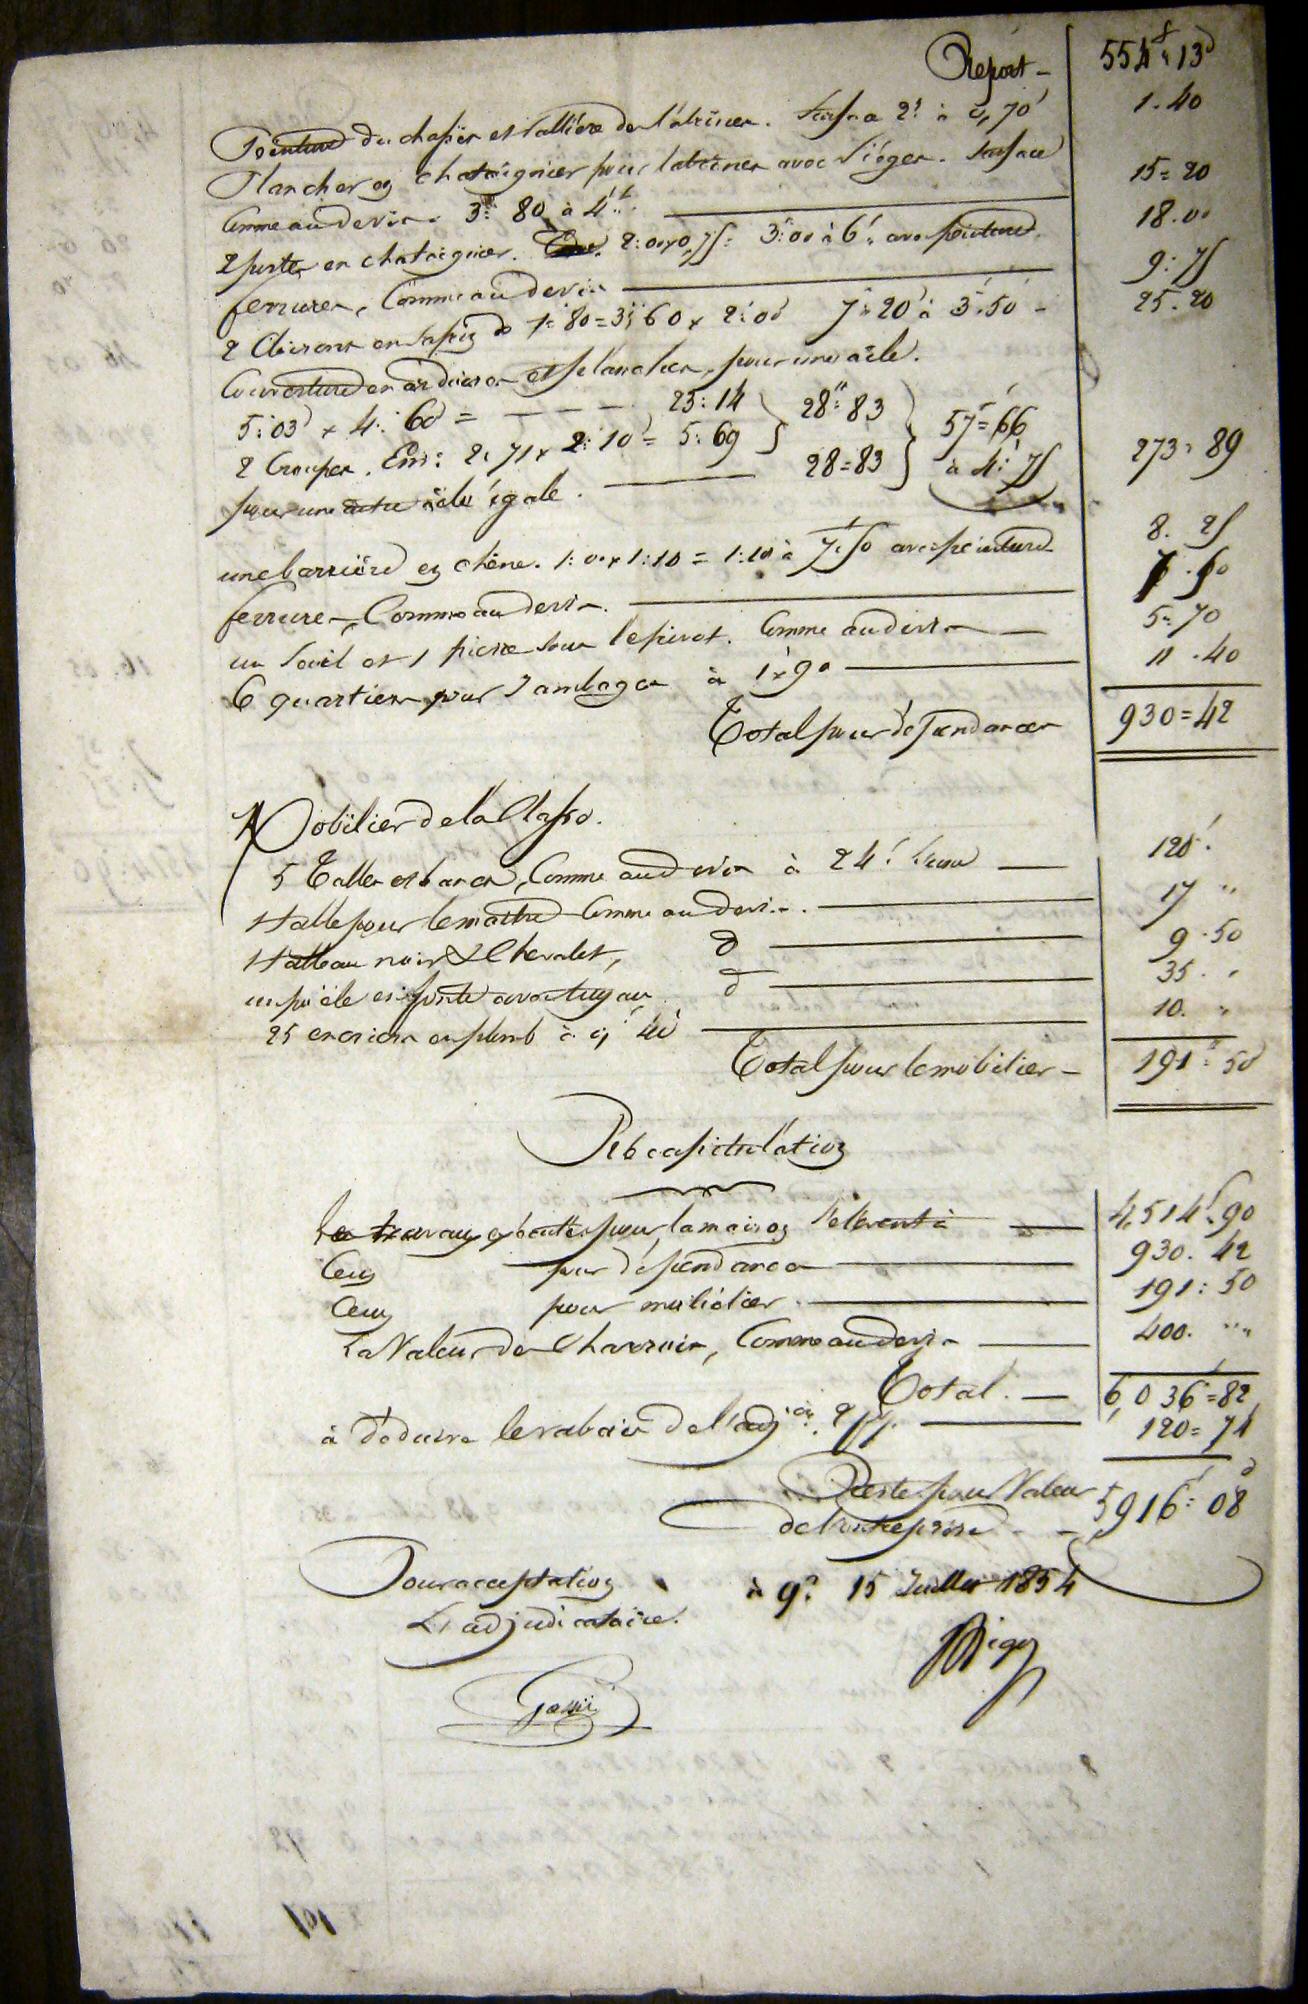 Report - 554f " 13d
Peinture du chassis et sallière de latrines. Surface 2: à 0,70 1.40
Plancher en chataignier pour latrines avec siéges. Surface
Comme au devis. 3: 80 à 4f 15=20
2 portes en chataignier. 2:00x0,75= 3:00 à 6f, avec peinture. 18.00
ferrures, Comme au devis 9:75
2 Cloisons en sapin de 1:80=3:60 x 2:00 7:20 à 3:50 - 25.20
Couverture en ardoises et plancher, pour une aile.
5:03 x 4:60 = - - - - 23:14 } 28:83
2 Croupes. Ens: 2,71 x 2:10 = 5:69 } 57=66
pour une autre aile égale. 28=83 à 4:75 273=89
une barrière en chêne. 1:00x1:10=1:10 à 7:50 avec peinture 8.25
ferrures, Comme au devis. 7.50
un seuil et 1 pierre sous le pivot. Comme au devis 5=70
6 quartiers pour Jambages à 1=90 11.40
Total pour dépendances 930=42
Mobilier de la Classe.
5 Tables et bancs, Comme au devis à 24f l'une 120f.
1 table pour le maitre Comme au devis. 17 "
1 tableau noir & Chevalet, d 9.50
un poële en fonte avec tuyau d 35. "
25 encriers en plomb à 0,40 10. "
Total pour le mobilier - 191=50
Récapitulation
Les travaux exécutés pour la maison s'élèvent à 4,514f.90
Ceux pour dépendances 930.42
Ceux pour mobilier 191:50
La Valeur de Charrois, Comme au devis 400. ""
Total. 6,036=82
à déduire le rabais de l'adjon. 2 p% 120=74
Reste pour Valeur
de l'entreprise - - 5,916=08
Pour acceptation à Qr 15 Juillet 1854
L'adjudicataire.